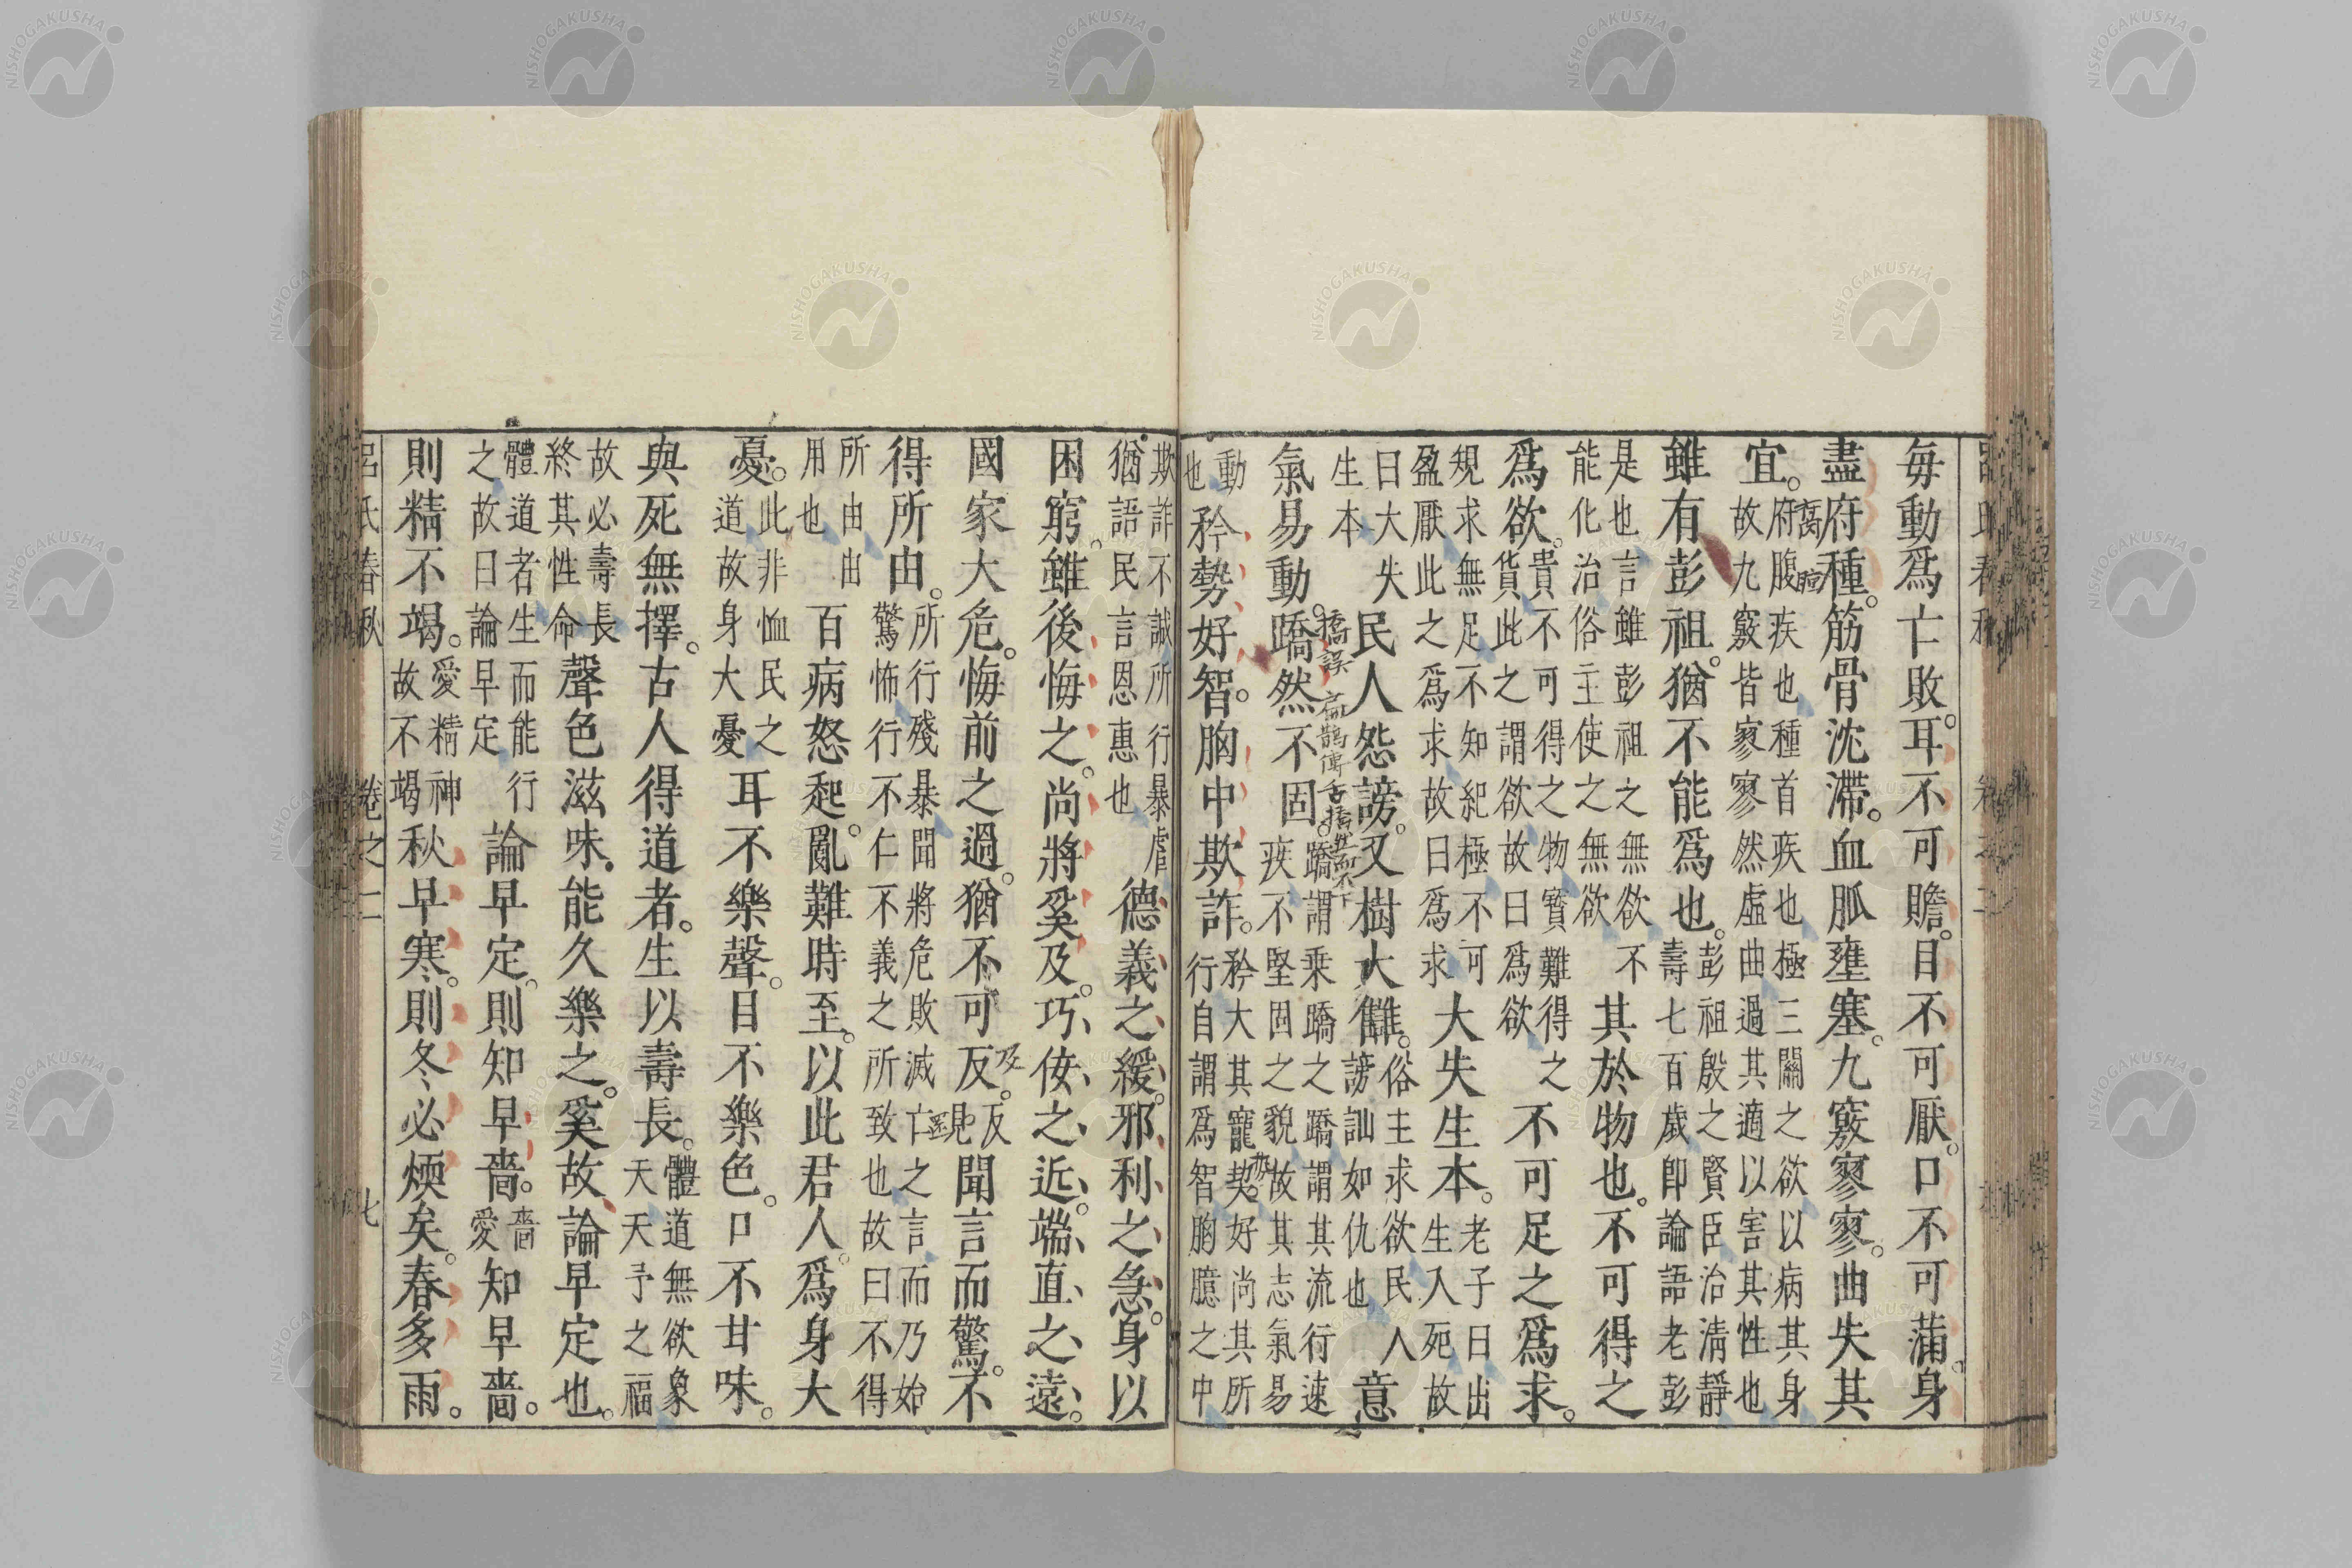 每動爲亡敗。耳不可贍。目不可厭。口不可滿。身
盡府種。筋骨沈滯。血脈壅塞。九竅寥寥。曲失其
宜。府腹疾也種首疾也極三關之欲以病其身故九竅皆寥寥然虛曲過其適以害其性也
雖有彭祖。猶不能爲也。彭祖殷之賢臣治清靜壽七百歲卽論語老彭
是也言雖彭祖之無欲不能化治俗主使之無欲其於物也。不可得之
爲欲。貴不可得之物寳難得之貨此之謂欲故曰爲欲不可足之爲求。
規求無足不知紀極不可盈厭此之爲求故曰爲求大失生本。老子曰出生入死故
曰大失生本民人怨謗。又樹大讎。俗主求欲民人謗訕如仇也意
氣易動。蹻然不固。蹻謂乘蹻之蹻謂其流行速疾不堅固之貌故其志氣易
動也矜勢好智。胸中欺詐。矜大其寵契好尚其所行自謂爲智胸臆之中
欺詐不誠所行暴虐猶語民言恩惠也德義之緩。邪利之急。身以
困窮。雖後悔之。尚將奚及。巧佞之近。端直之遠。
國家大危。悔前之過。猶不可反。反見聞言而驚。不
得所由。所行殘暴聞將危敗滅亡之言而乃始驚怖行不仁不義之所致也故曰不得
所由由用也百病怒起。亂難時至。以此君人。爲身大
憂。此非恤民之道故身大憂耳不樂聲。目不樂色。口不甘味。
與死無擇。古人得道者。生以壽長。體道無欲象天天予之福
故必壽長終其性命聲色滋味。能久樂之。奚故。論早定也。
體道者生而能行之故曰論早定論早定。則知早嗇。嗇愛知早嗇。
則精不竭。愛精神故不竭秋早寒。則冬必煗矣。春多雨。
呂氏春秋 卷之二 七
NISHOGAKUSHA